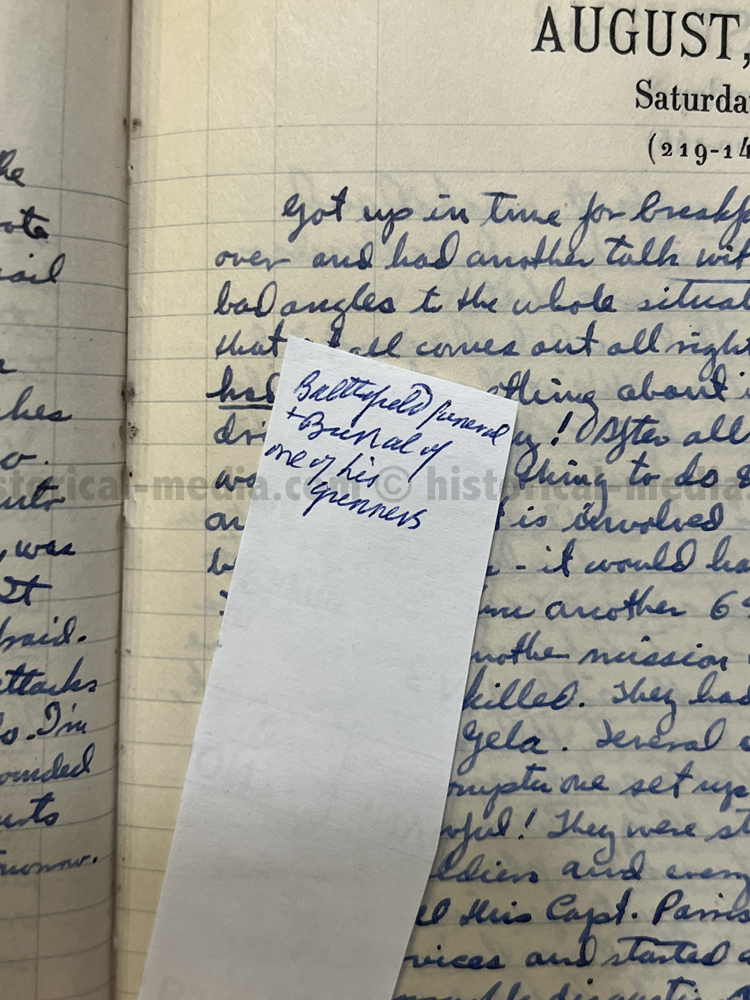 he
ote
ail
hes
o.
nto
, was
It
raid.
attacks
o. I'm
ounded
urts
tomorrow.
AUGUST,
Saturda
(219-14
Got up in time for breakf
over and had another talk wit
bad angles to the whole situat
that it all comes out all right
had othing about
dri y! After all
wo thing to do
an t is involved
b - it would ha
another 6
nother mission
killed. They had
Gela. Several
one set up
ful! They were st
ldiers and every
el this Capt. Parris
rvices and started a
Battlefield funeral
+ Burial of
one of his
gunners
historical-media.com © historical-media